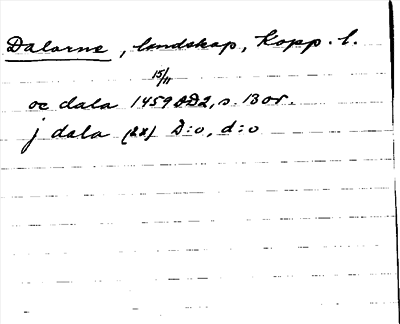 Dalarne, landskap, Kopp. l.
15/11
oc dala 1459 DD2, s. 13 or.
j dala (2x) D:o, d:o